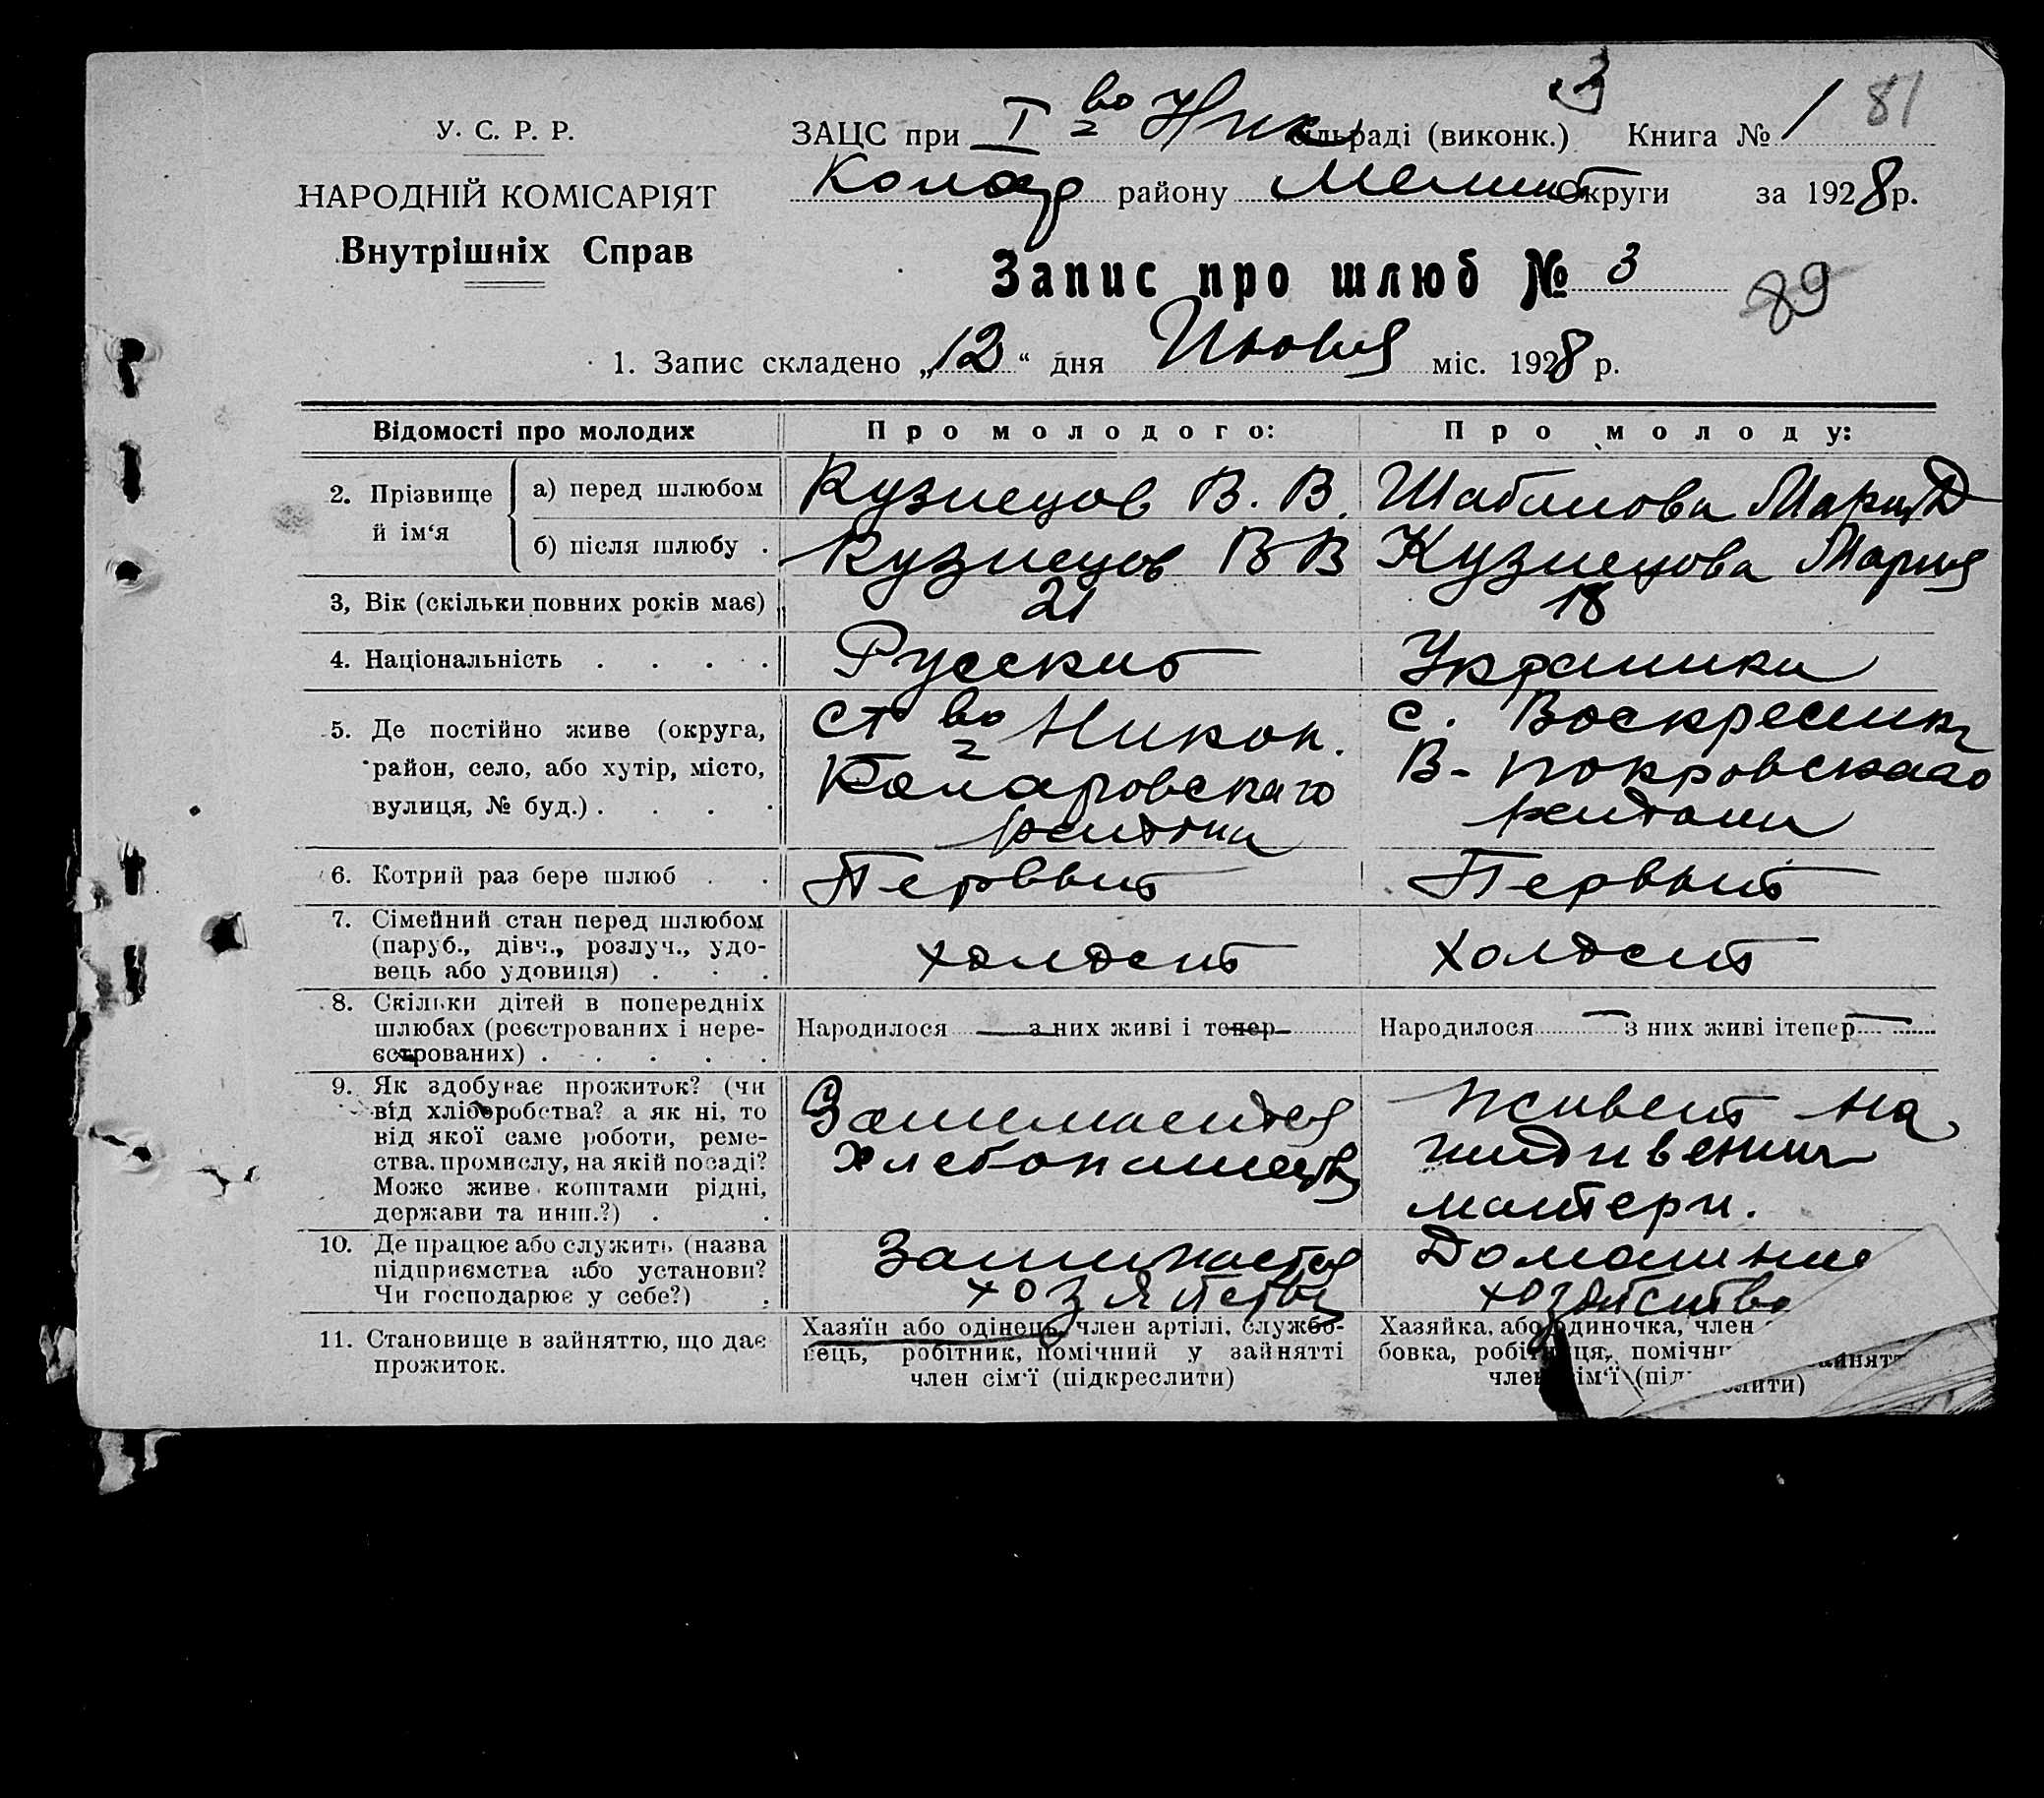 3
У. С. Р. Р.
ЗАЦС при I во Ник сільраді (виконк.) Книга № 1 81
НАРОДНІЙ КОМІСАРІЯТ
Комар району Мелит округи за 1928 р.
Внутрішніх Справ
Запис про шлюб № 3
89
1. Запис складено „12“ дня Июня міс. 1928 р.
Відомості про молодих Про молодого: Про молоду:
2. Прізвище й ім‘я
а) перед шлюбом Кузнецов В. В. Шаблиова Мария Д
б) після шлюбу . Кузнецов В В Кузнецова Мария
3, Вік (скільки повних років має) 21 18
4. Національність . . . . Русский Украинка
5. Де постійно живе (округа, район, село, або хутір, місто, вулиця, № буд.) . . . .
ст во Никоп.
Комаровскаго
района
с. Воскресенка
В-Покровскаго
района
6. Котрий раз бере шлюб . . Первый Первый
7. Сімейний стан перед шлюбом (паруб., дівч., розлуч., удовець або удовиця) . . . холост холост
8. Скільки дітей в попередніх шлюбах (реєстрованих і нереєстрованих) . . . . .
Народилося — з них живі і тепер —
Народилося — з них живі ітепер —
9. Як здобуває прожиток? (чи від хліборобства? а як ні, то від якої саме роботи, ремества, промислу, на якій посаді? Може живе коштами рідні, держави та инш.?) . .
Занимается
хлебопашеств
живет на
иждивении
матери.
10. Де працює або служить (назва підприємства або установи? Чи господарює у себе?) .
Занимается
хозяйств
Домашнее
хозяйство
11. Становище в зайняттю, що дає прожиток.
Хазяїн або одінець, член артілі, службовець, робітник, помічний у зайнятті член сім‘ї (підкреслити)
Хазяйка, або одиночка, член
бовка, робітниця, помічн зайнятт
член сім‘ї (під слити)